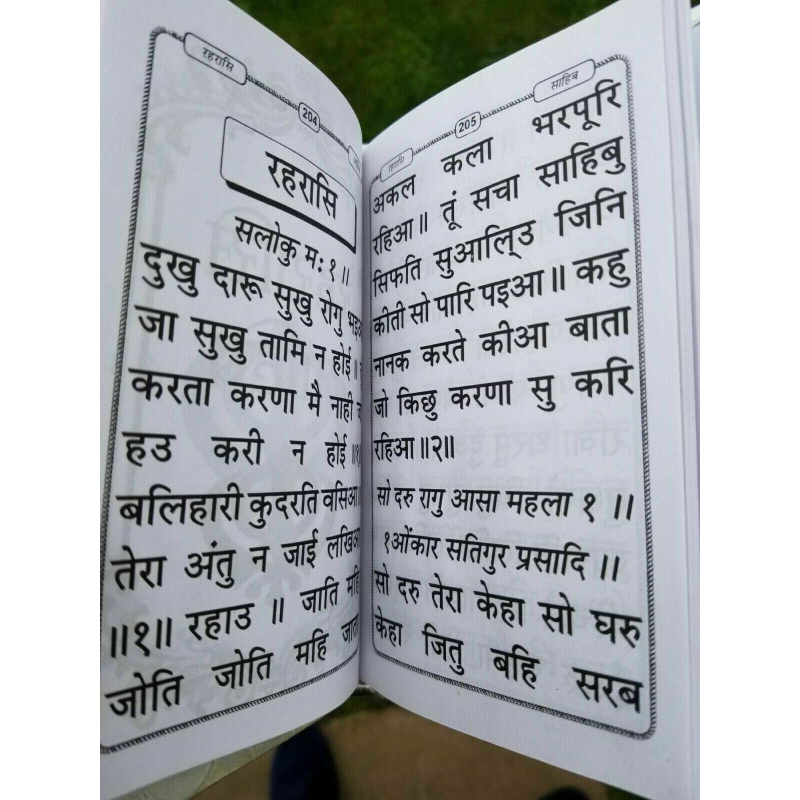 रहरासि
204
रहरासि
सलोकु मः १ ॥
दुखु दारू सुखु रोगु
जा सुखु तामि न होई
करता करणा मै नाही
हउ करी न होई
बलिहारी कुदरति वसिआ
तेरा अंतु न जाई
॥१॥ रहाउ ॥ जाति महि
जोति जोति महि जाता
साहिब
205
रहरासि
अकल कला भरपूरि
रहिआ॥ तूं सचा साहिबु
सिफति सुआलि्उ जिनि
कीती सो पारि पइआ॥ कहु
नानक करते कीआ बाता
जो किछु करणा सु करि
रहिआ॥२॥
सो दरु रागु आसा महला १ ।।
१ओंकार सतिगुर प्रसादि ।।
सो दरु तेरा केहा सो घरु
केहा जितु बहि सरब